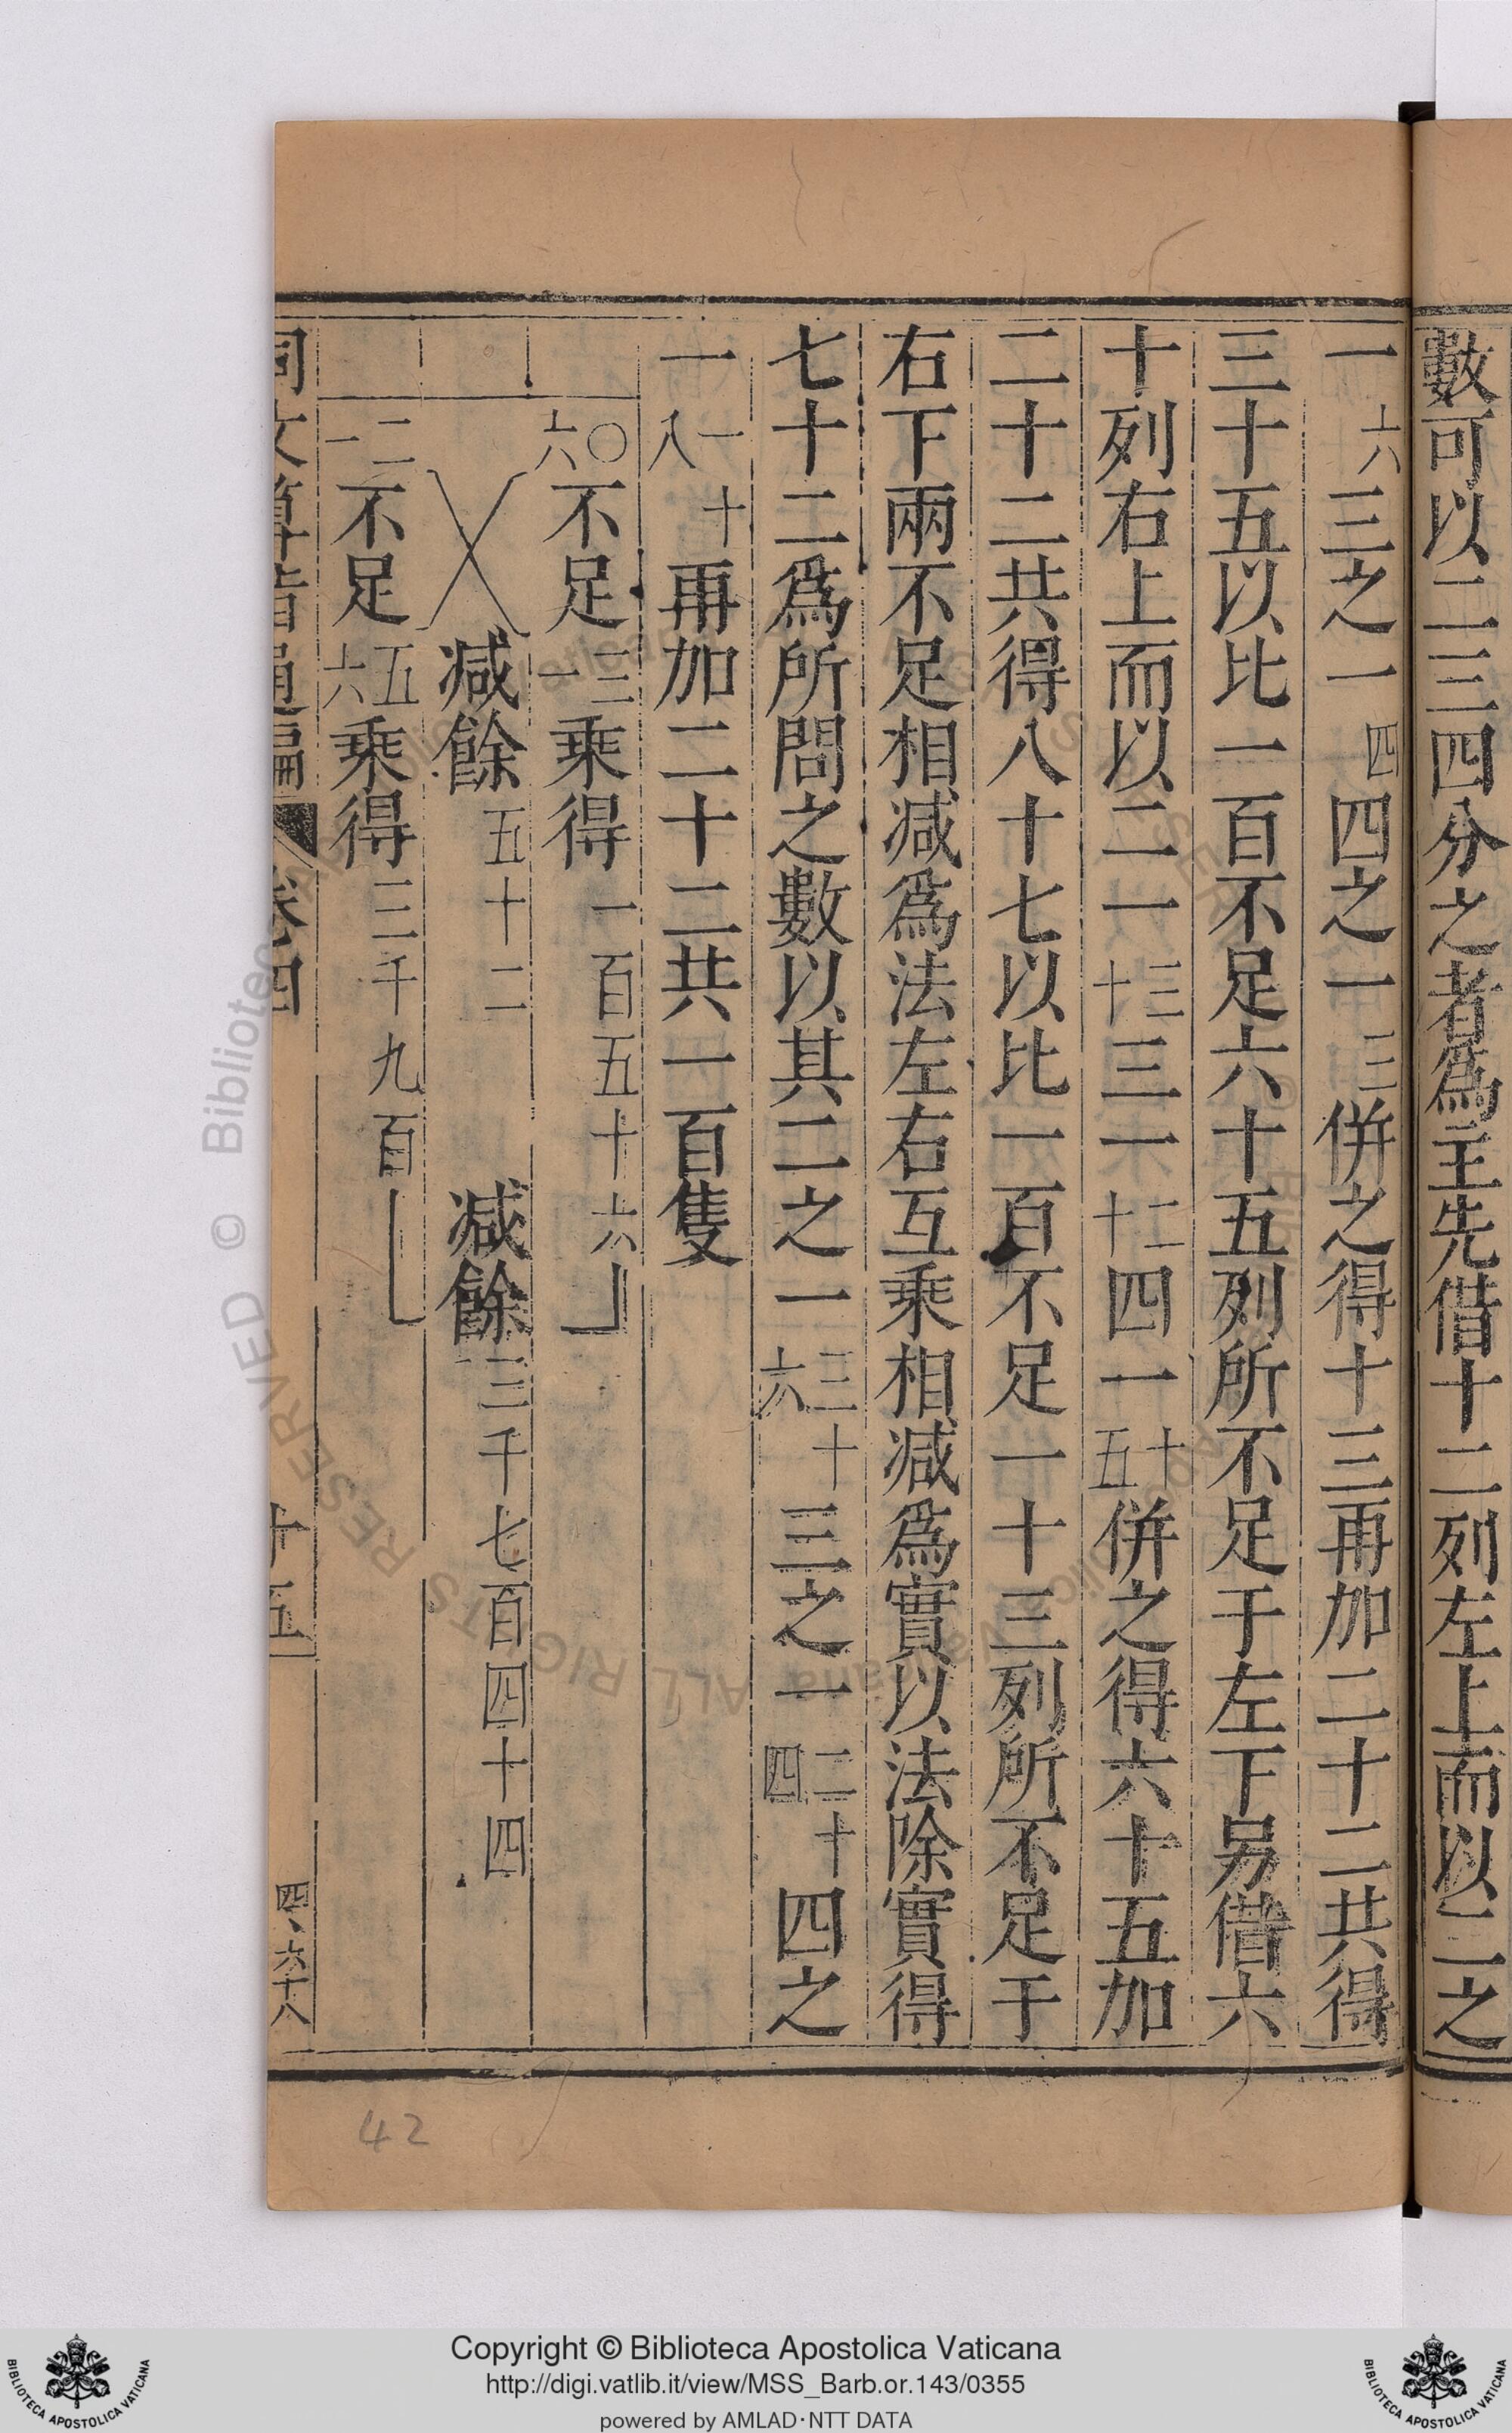 數可以二三四分之者爲主先借十二列左上而以二之
一六三之一四四之一三併之得十三再加二十二共得
三十五以比一百不足六十五列所不足于左下另借六
十列右上而以二一三十三一二十四一十五併之得六十五加
二十二共得八十七以比一百不足一十三列所不足于
右下兩不足相減爲法左右互乘相減爲實以法除實得
七十二爲所問之數以其二之一三十六三之一二十四四之
一一十八再加二十二共一百隻
六〇不足一三乘得一百五十六
減餘五十二 減餘三千七百四十四
一二不足六五乘得三千九百
同文算指通編 卷四 十五 四、六十八
42
© Biblioteca Apostolica Vaticana ALL RIGHTS RESERVED
Copyright © Biblioteca Apostolica Vaticana
http://digi.vatlib.it/view/MSS_Barb.or.143/0355
powered by AMLAD·NTT DATA
BIBLIOTECA APOSTOLICA VATICANA
BIBLIOTECA APOSTOLICA VATICANA